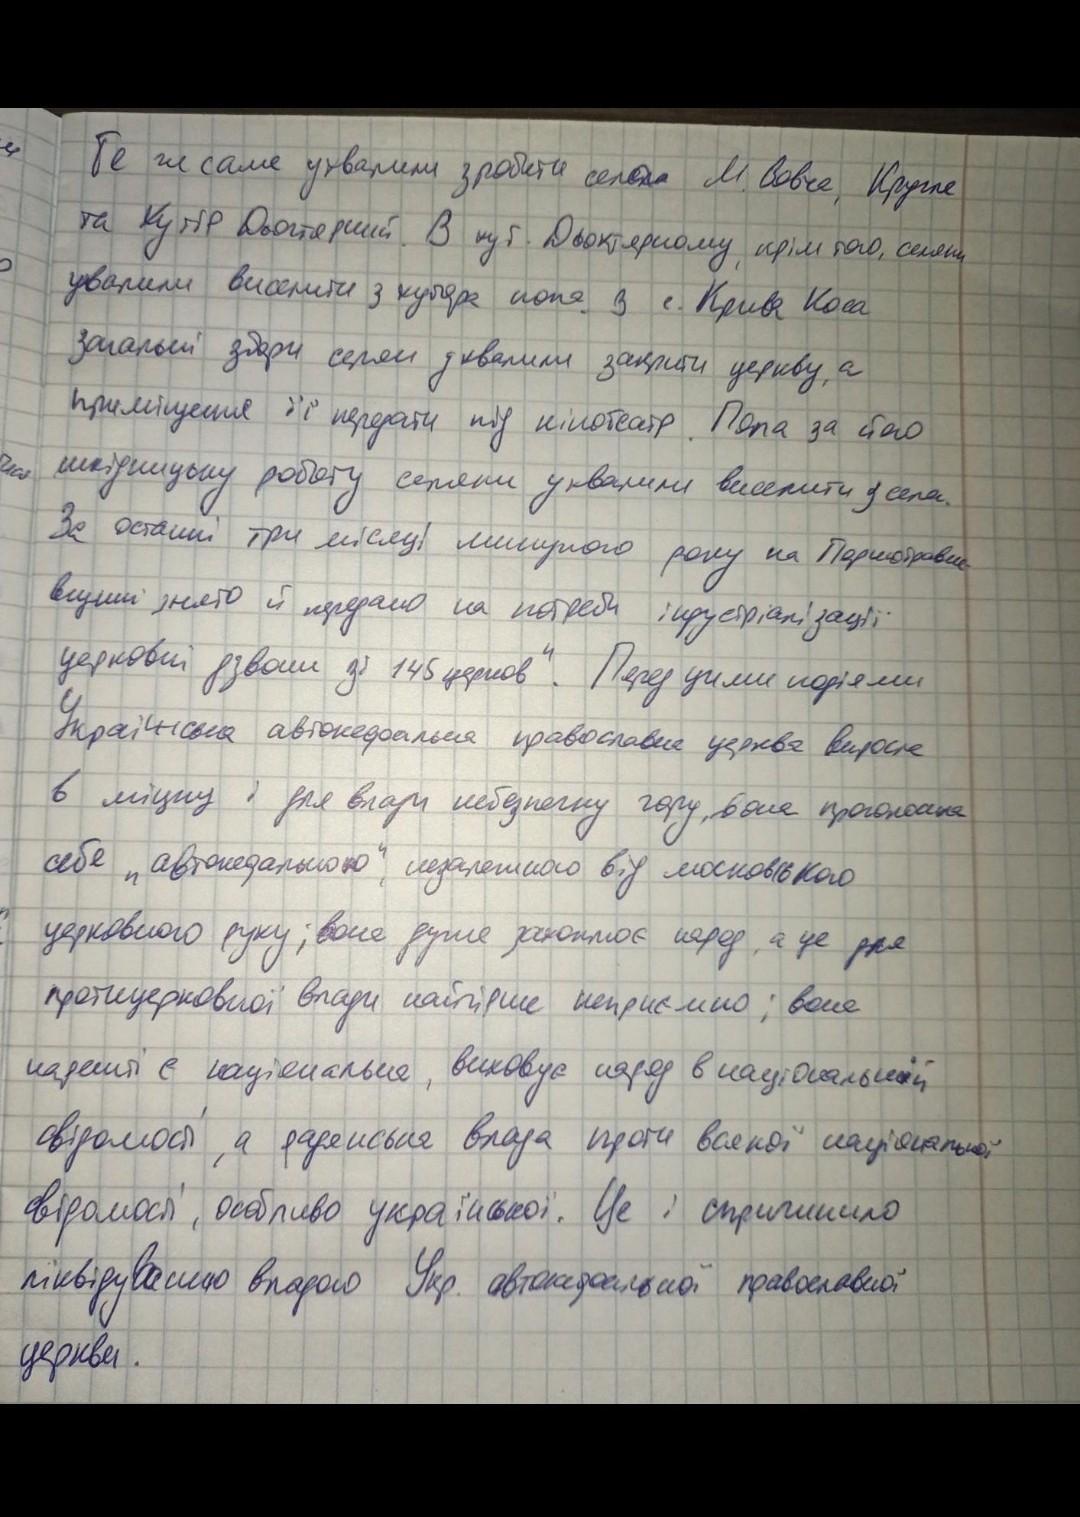 Те ж саме ухвалили зробити селяни М. Вовча, Кругле
та Хутір Дьогтярний. В хут. Дьохтярному, крім того, селяни
ухвалили виселити з хутора попа. В с. Крива Коса
загальні збори селян ухвалили закрити церкву, а
приміщення її передати під кінотеатр. Попа за його
шкідницьку роботу селяни ухвалили виселити з села.
За останні три місяці минулого року на Першотравне
вщині знято й передано на потреби індустріалізації
церковні дзвони зі 145 церков". Перед цими подіями
Українська автокефальна православна церква виросла
в міцну і для влади небезпечну гору, вона проголосила
себе „автокефальною", незалежного від московського
церковного руху; вона дуже захоплює народ, а це для
протицерковної влади найгірше неприємно; вона
нарешті є національна, виховує народ в національній
свідомості, а радянська влада проти всякої національної
свідомості, особливо української. Це і спричинило
ліквідуванню владою Укр. автокефальної православної
церкви.